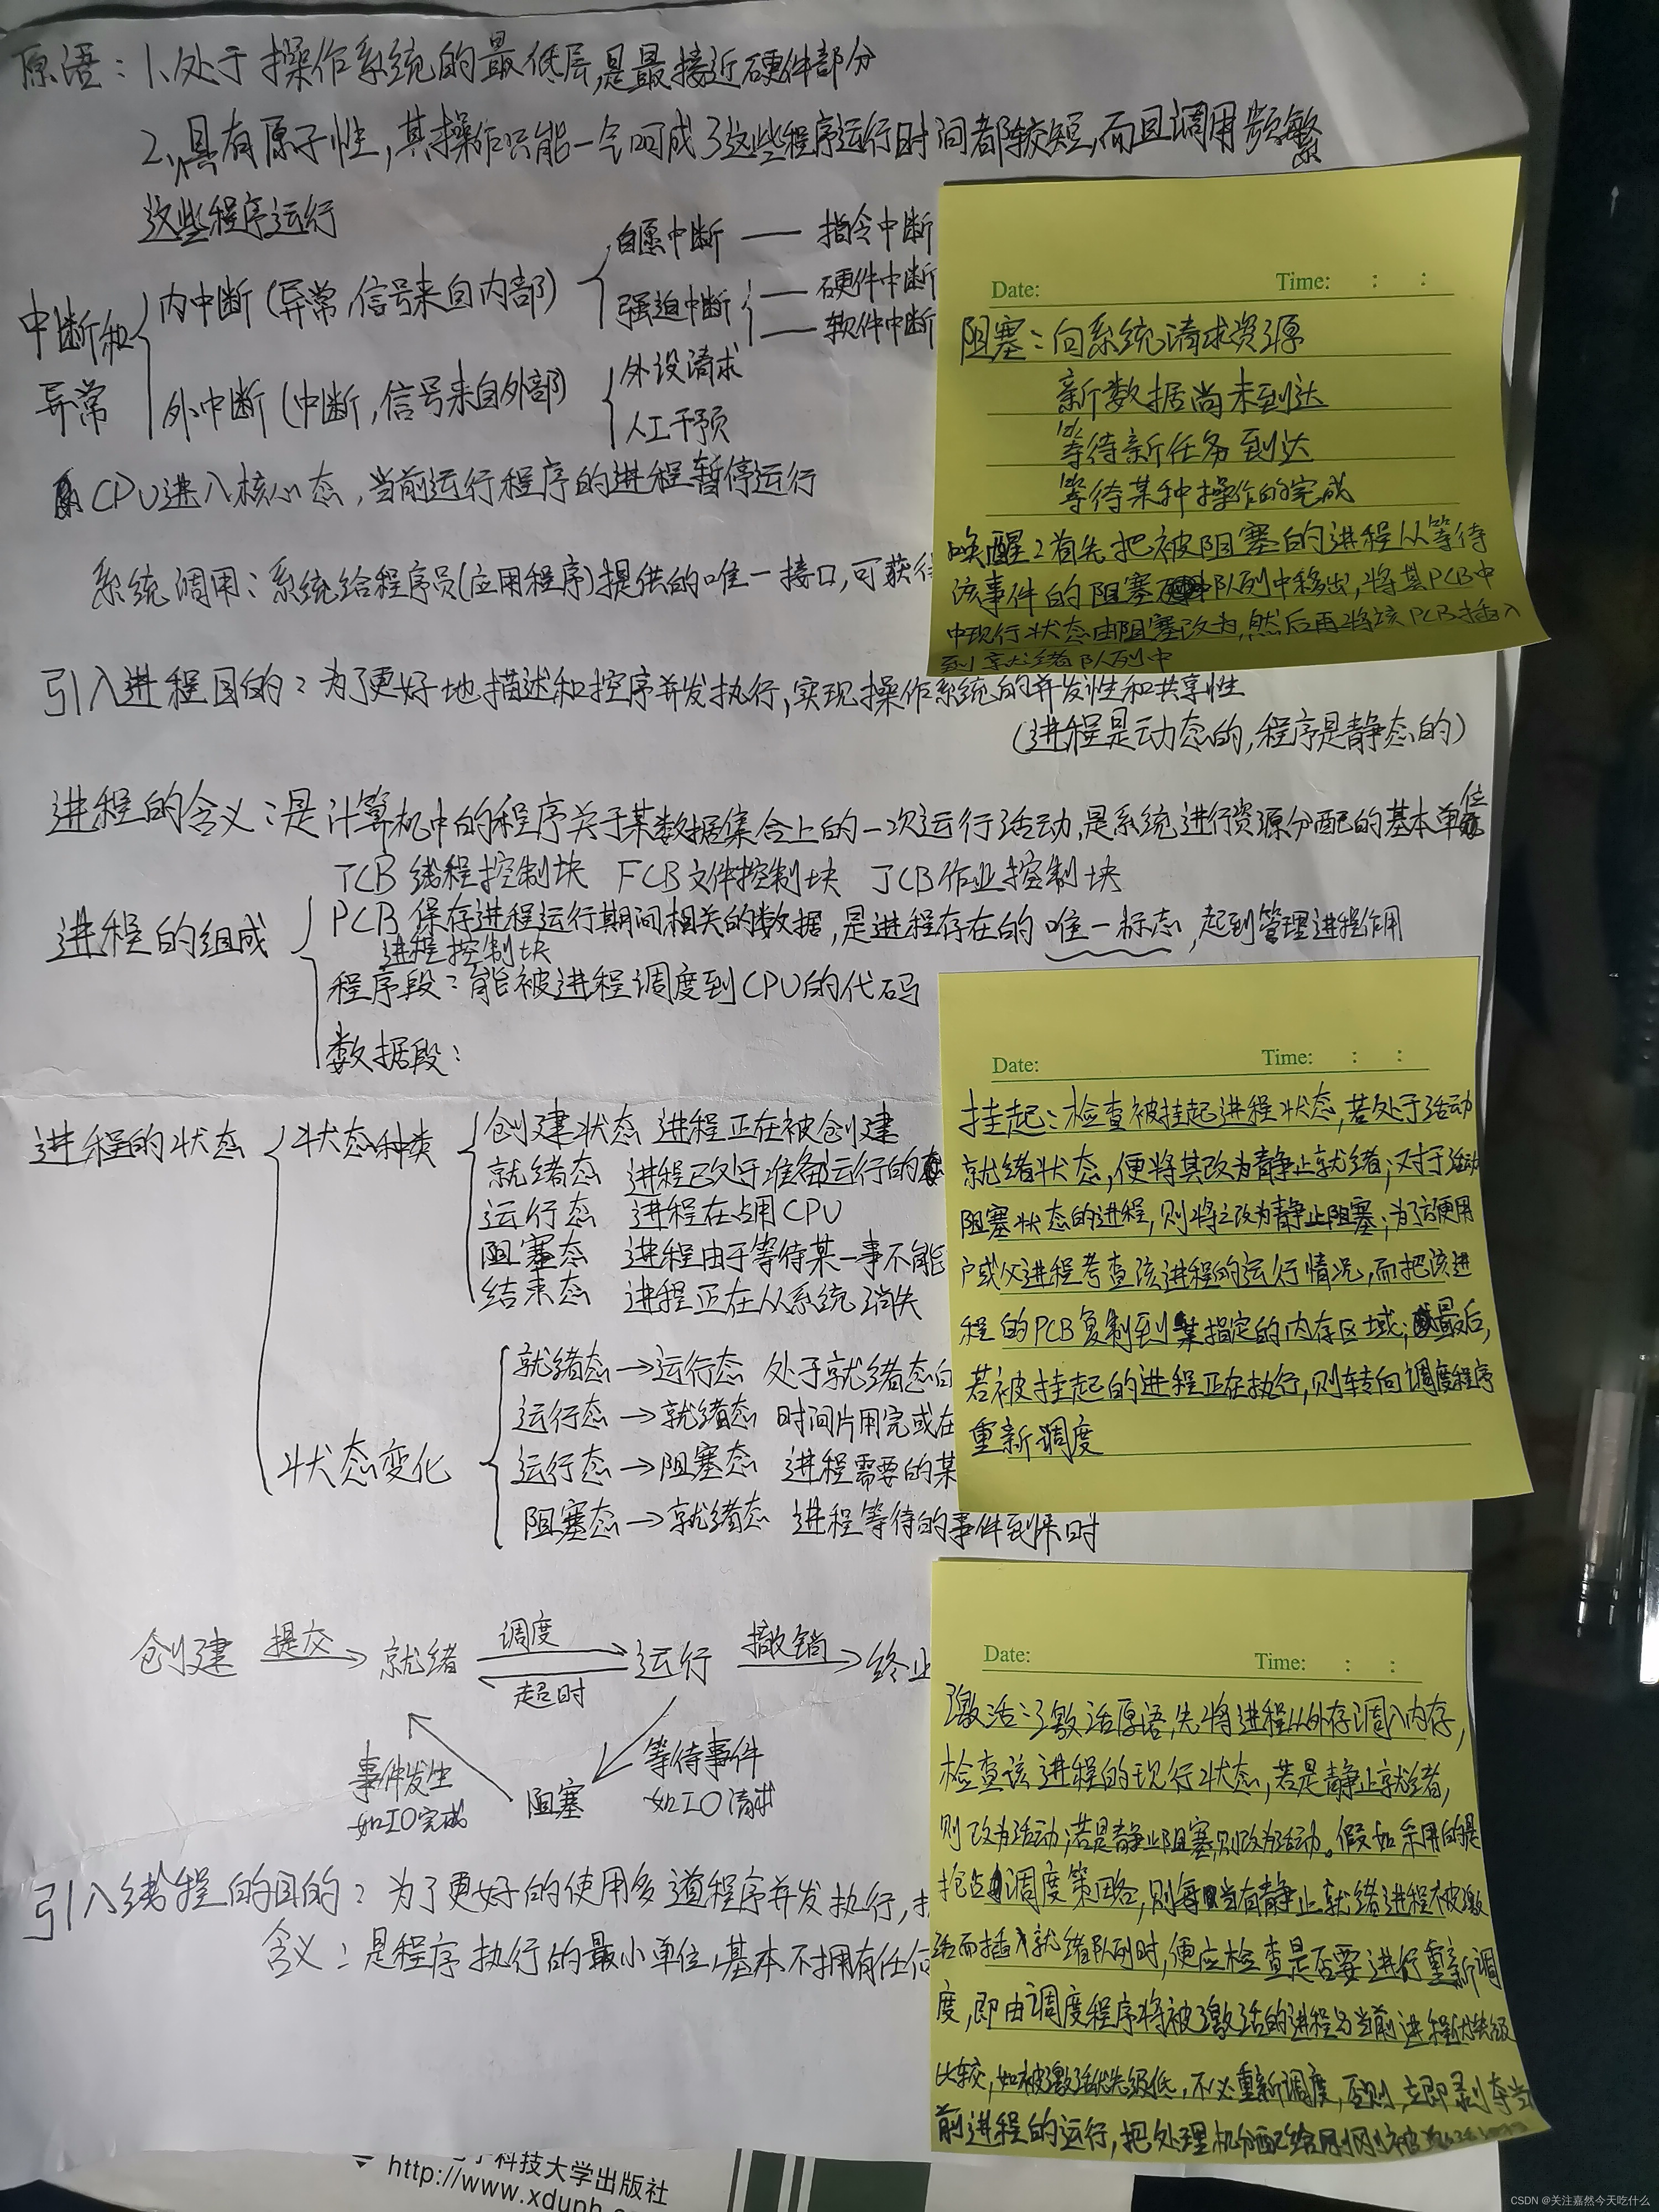 原语：1、处于操作系统的最低层,是最接近硬件部分
2、具有原子性,其操作只能一气呵成 3 这些程序运行时间都较短,而且调用频繁
这些程序运行
中断和异常
内中断(异常,信号来自内部)
自愿中断 —— 指令中断
强迫中断 —— 硬件中断
—— 软件中断
外中断(中断,信号来自外部)
外设请求
人工干预
CPU进入核心态,当前运行程序的进程暂停运行
系统调用：系统给程序员(应用程序)提供的唯一接口,可获
引入进程目的：为了更好地描述和控序并发执行,实现操作系统的并发性和共享性
(进程是动态的,程序是静态的)
进程的含义：是计算机中的程序关于某数据集合上的一次运行活动,是系统进行资源分配的基本单位
TCB 线程控制块 FCB 文件控制块 JCB 作业控制块
进程的组成
PCB 保存进程运行期间相关的数据,是进程存在的唯一标志,起到管理进程作用
进程控制块
程序段：能被进程调度到CPU的代码
数据段：
进程的状态
状态种类
创建状态 进程正在被创建
就绪态 进程已处于准备运行的
运行态 进程在占用CPU
阻塞态 进程由于等待某一事不能
结束态 进程正在从系统消失
状态变化
就绪态→运行态 处于就绪态
运行态→就绪态 时间片用完或在
运行态→阻塞态 进程需要的某
阻塞态→就绪态 进程等待的事件到来时
创建 提交 就绪 调度 运行 撤销 终止
超时
事件发生
如IO完成
阻塞
等待事件
如IO请求
引入线程的目的：为了更好的使用多道程序并发执行,
含义：是程序执行的最小单位,基本不拥有任何
Date: Time: : :
阻塞：向系统请求资源
新数据尚未到达
等待新任务到达
等待某种操作的完成
唤醒：首先把被阻塞的进程从等待
该事件的阻塞队列中移出,将其PCB中
中现行状态由阻塞改为,然后再将该PCB插入
到就绪队列中
Date: Time: : :
挂起：检查被挂起进程状态,若处于活动
就绪状态,便将其改为静止就绪;对于活动
阻塞状态的进程,则将之改为静止阻塞;为了方便用
户或父进程考查该进程的运行情况,而把该进
程的PCB复制到某指定的内存区域;最后,
若被挂起的进程正在执行,则转向调度程序
重新调度
Date: Time: : :
激活：激活原语,先将进程从外存调入内存,
检查该进程的现行状态,若是静止就绪,
则改为活动;若是静止阻塞,则改为活动。假如采用的是
抢占调度策略,则每当有静止就绪进程被激
活而插入就绪队列时,便应检查是否要进行重新调
度,即由调度程序将被激活的进程与当前进程优先级
比较,如被激活优先级低,不必重新调度,否则,立即剥夺当
前进程的运行,把处理机分配给刚刚被
科技大学出版社
http://www.xduph.
CSDN @关注嘉然今天吃什么